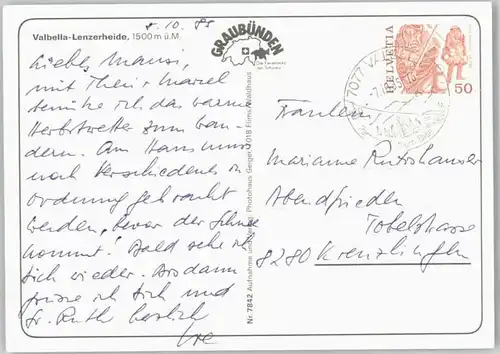 Valbella-Lenzerheide, 1500 m ü.M.
8.10.85
GRAUBÜNDEN
Die Ferienecke
der Schweiz
HELVETIA
50
7077 VALBELLA
Liebes Mausi,
mit Thesi + Marcel
genieße ich das warme
Herbstwetter zum wan-
dern. Am Haus muss
noch Verschiedenes in
Ordnung gebracht
werden, bevor der Schnee
kommt! Bald sehe ich
Dich wieder. Bis dann
grüsse ich Dich und
Sr. Ruth herzlich
Fräulein
Marianne Rutishauser
Abendfrieden
Tobelstrasse
8280 Kreuzlingen
Nr. 7842 Aufnahme und Verlag: Photohaus Geiger, 7018 Flims-Waldhaus